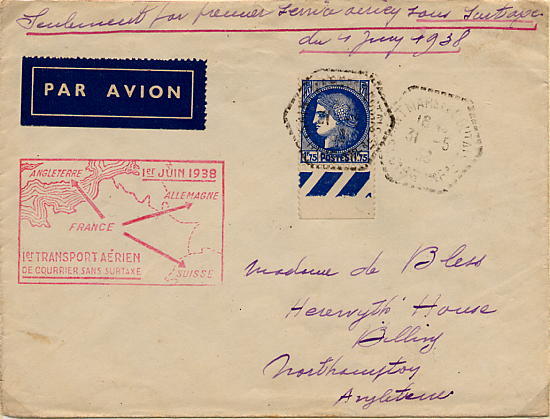 Seulement par premier service aérien sans surtaxe
du 1 Juin 1938
PAR AVION
1.75 POSTES 1.75
MARSEILLE
18
31 - 5
1ER JUIN 1938
ANGLETERRE
ALLEMAGNE
FRANCE
1ER TRANSPORT AÉRIEN
DE COURRIER SANS SURTAXE
SUISSE
Madame de Bless
House
Billing
Northampton
Angleterre